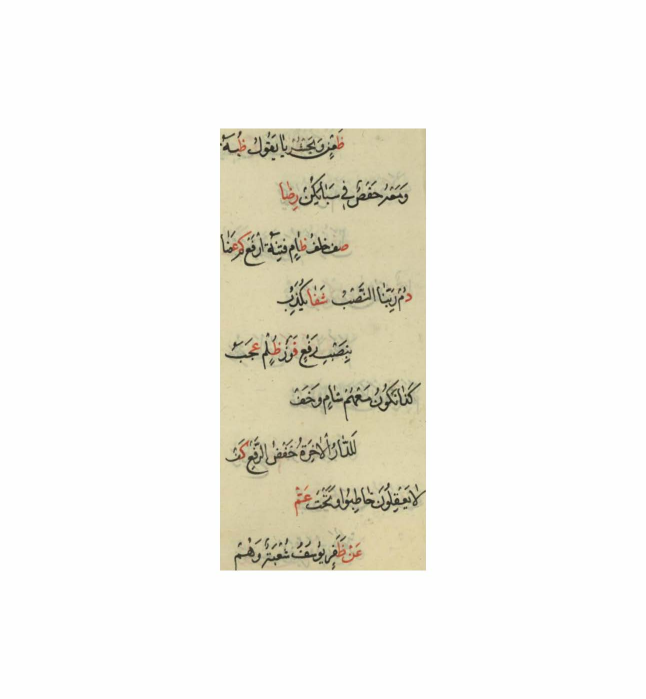 ظَعْنٍ وَنَحْشُرُ يَا يَقُولُ ظُبَةٌ
وَمَعْهُ حَفْصٌ فِي سَبَا يَكُنْ رِضَا
صِف خلف ظَامٍ فِتْنَةُ ارْفَعْ كَمْ عَضَا
دُمْ رَبِّنَا النَّصْبُ شَفَا نُكَذِّبُ
بِنَصْبِ رَفْعٍ فَوْزُ ظُلْمٍ عَجَبُ
كَذَا نَكُونُ مَعْهُمْ شَامٍ وَخَفْ
لَلدَّارُ الآخِرَةُ خَفْضُ الرَّفْعِ كَفْ
لا يَعْقِلُونَ خَاطِبُوا وَتَحْتُ عَمْ
عَنْ ظَفَرٍ يُوسُفُ شُعْبَةٌ وَهُمْ